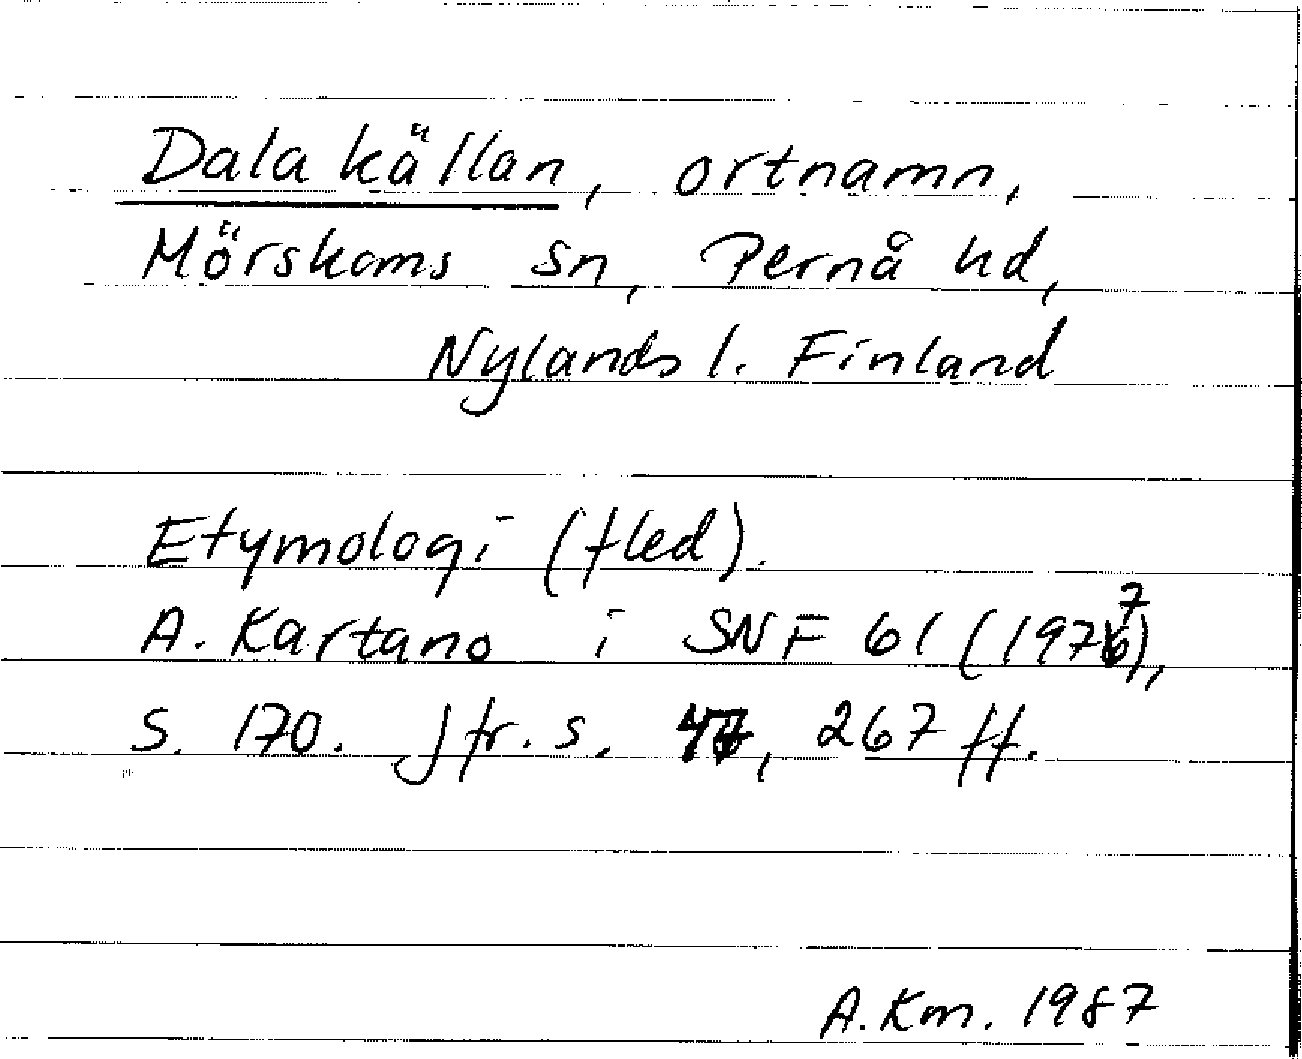 Dalakällan, ortnamn,
Mörskoms sn, Pernå hd,
Nylands l. Finland
Etymologi (fled).
A. Kartano i SNF 61 (1977),
S. 170. Jfr. s. 47, 267 ff.
A.Km. 1987